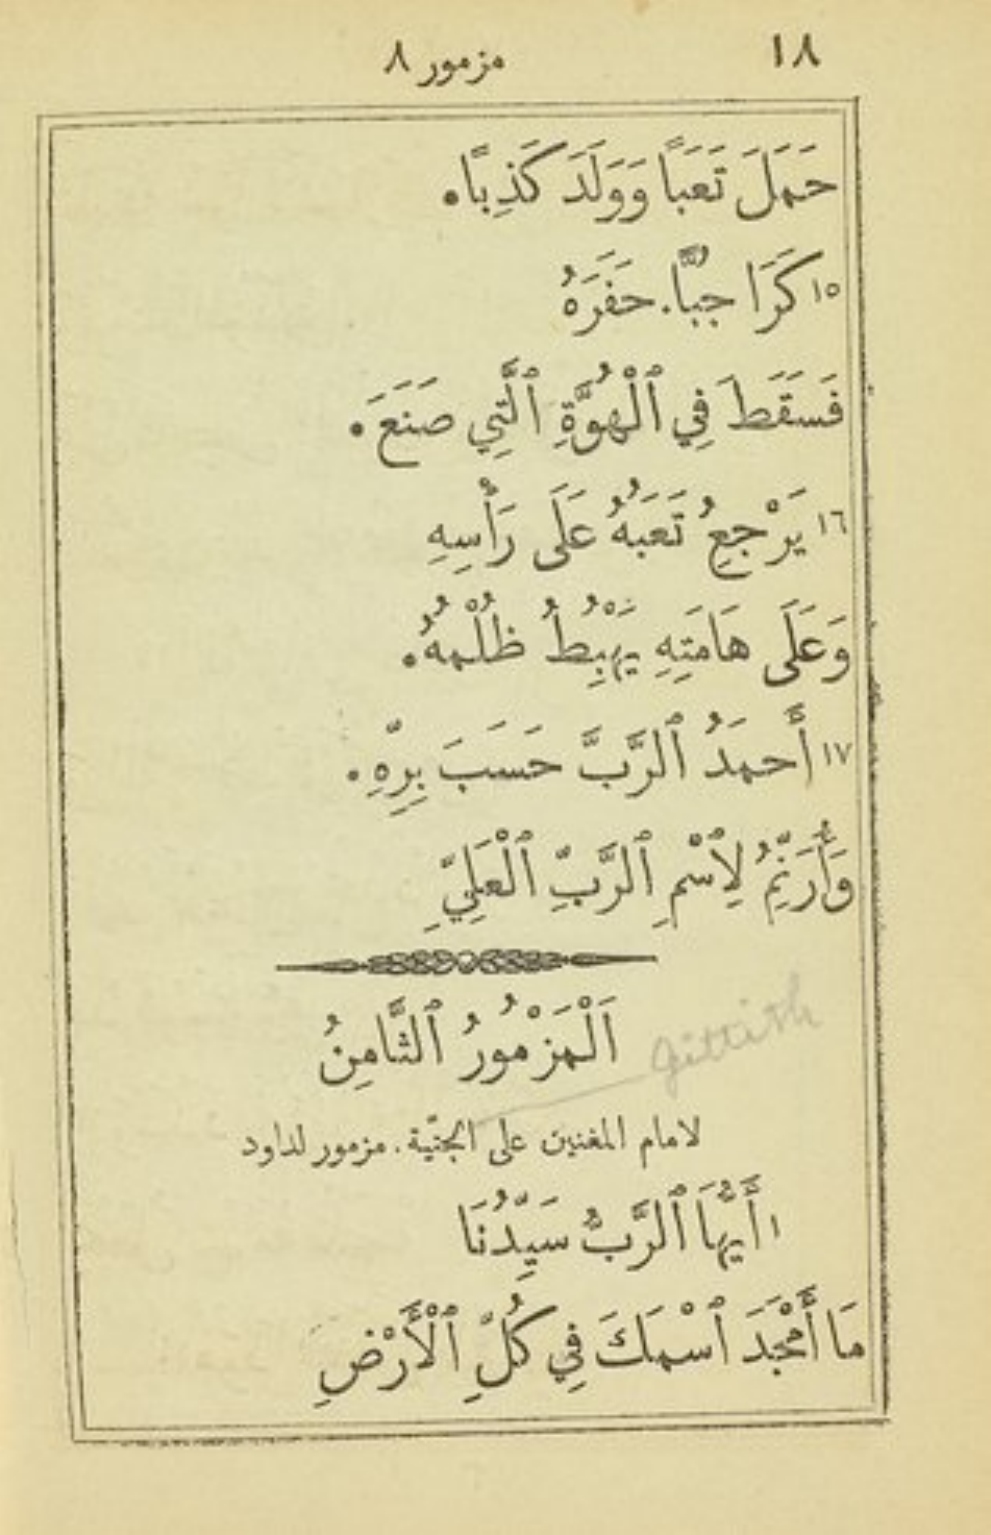 ١٨
مزمور ٨
حَمَلَ تَعَبَاً وَوَلَدَ كَذِبًا.
١٥ كَرَا جُبًّا. حَفَرَهُ
فَسَقَطَ فِي ٱلْهُوَّةِ ٱلَّتِي صَنَعَ.
١٦ يَرْجِعُ تَعَبُهُ عَلَى رَأْسِهِ
وَعَلَى هَامَتِهِ يَهْبِطُ ظُلْمُهُ.
١٧ أَحمَدُ ٱلرَّبَّ حَسَبَ بِرِّهِ.
وَأُرَنِّمُ لِٱسْمِ ٱلرَّبِّ ٱلْعَلِيِّ
اَلْمَزْمُورُ ٱلثَّامِنُ
gittish
لامام المغنين على الجتّية. مزمور لداود
١ أَيُّهَا ٱلرَّبُّ سَيِّدُنَا
مَا أَمْجَدَ ٱسْمَكَ فِي كُلِّ ٱلْأَرْضِ